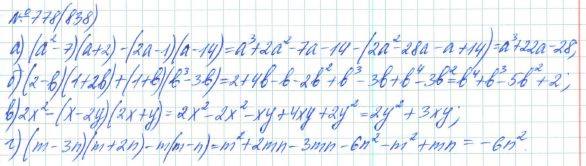 №778(838)
а) (a²-7)(a+2)-(2a-1)(a-14)=a³+2a²-7a-14-(2a²-28a-a+14)=a³+22a-28;
б) (2-b)(1+2b)+(1+b)(b³-3b)=2+4b-b-2b²+b³-3b+b⁴-3b²=b⁴+b³-5b²+2;
в) 2x²-(x-2y)(2x+y)=2x²-2x²-xy+4xy+2y²=2y²+3xy;
г) (m-3n)(m+2n)-m(m-n)=m²+2mn-3mn-6n²-m²+mn=-6n².